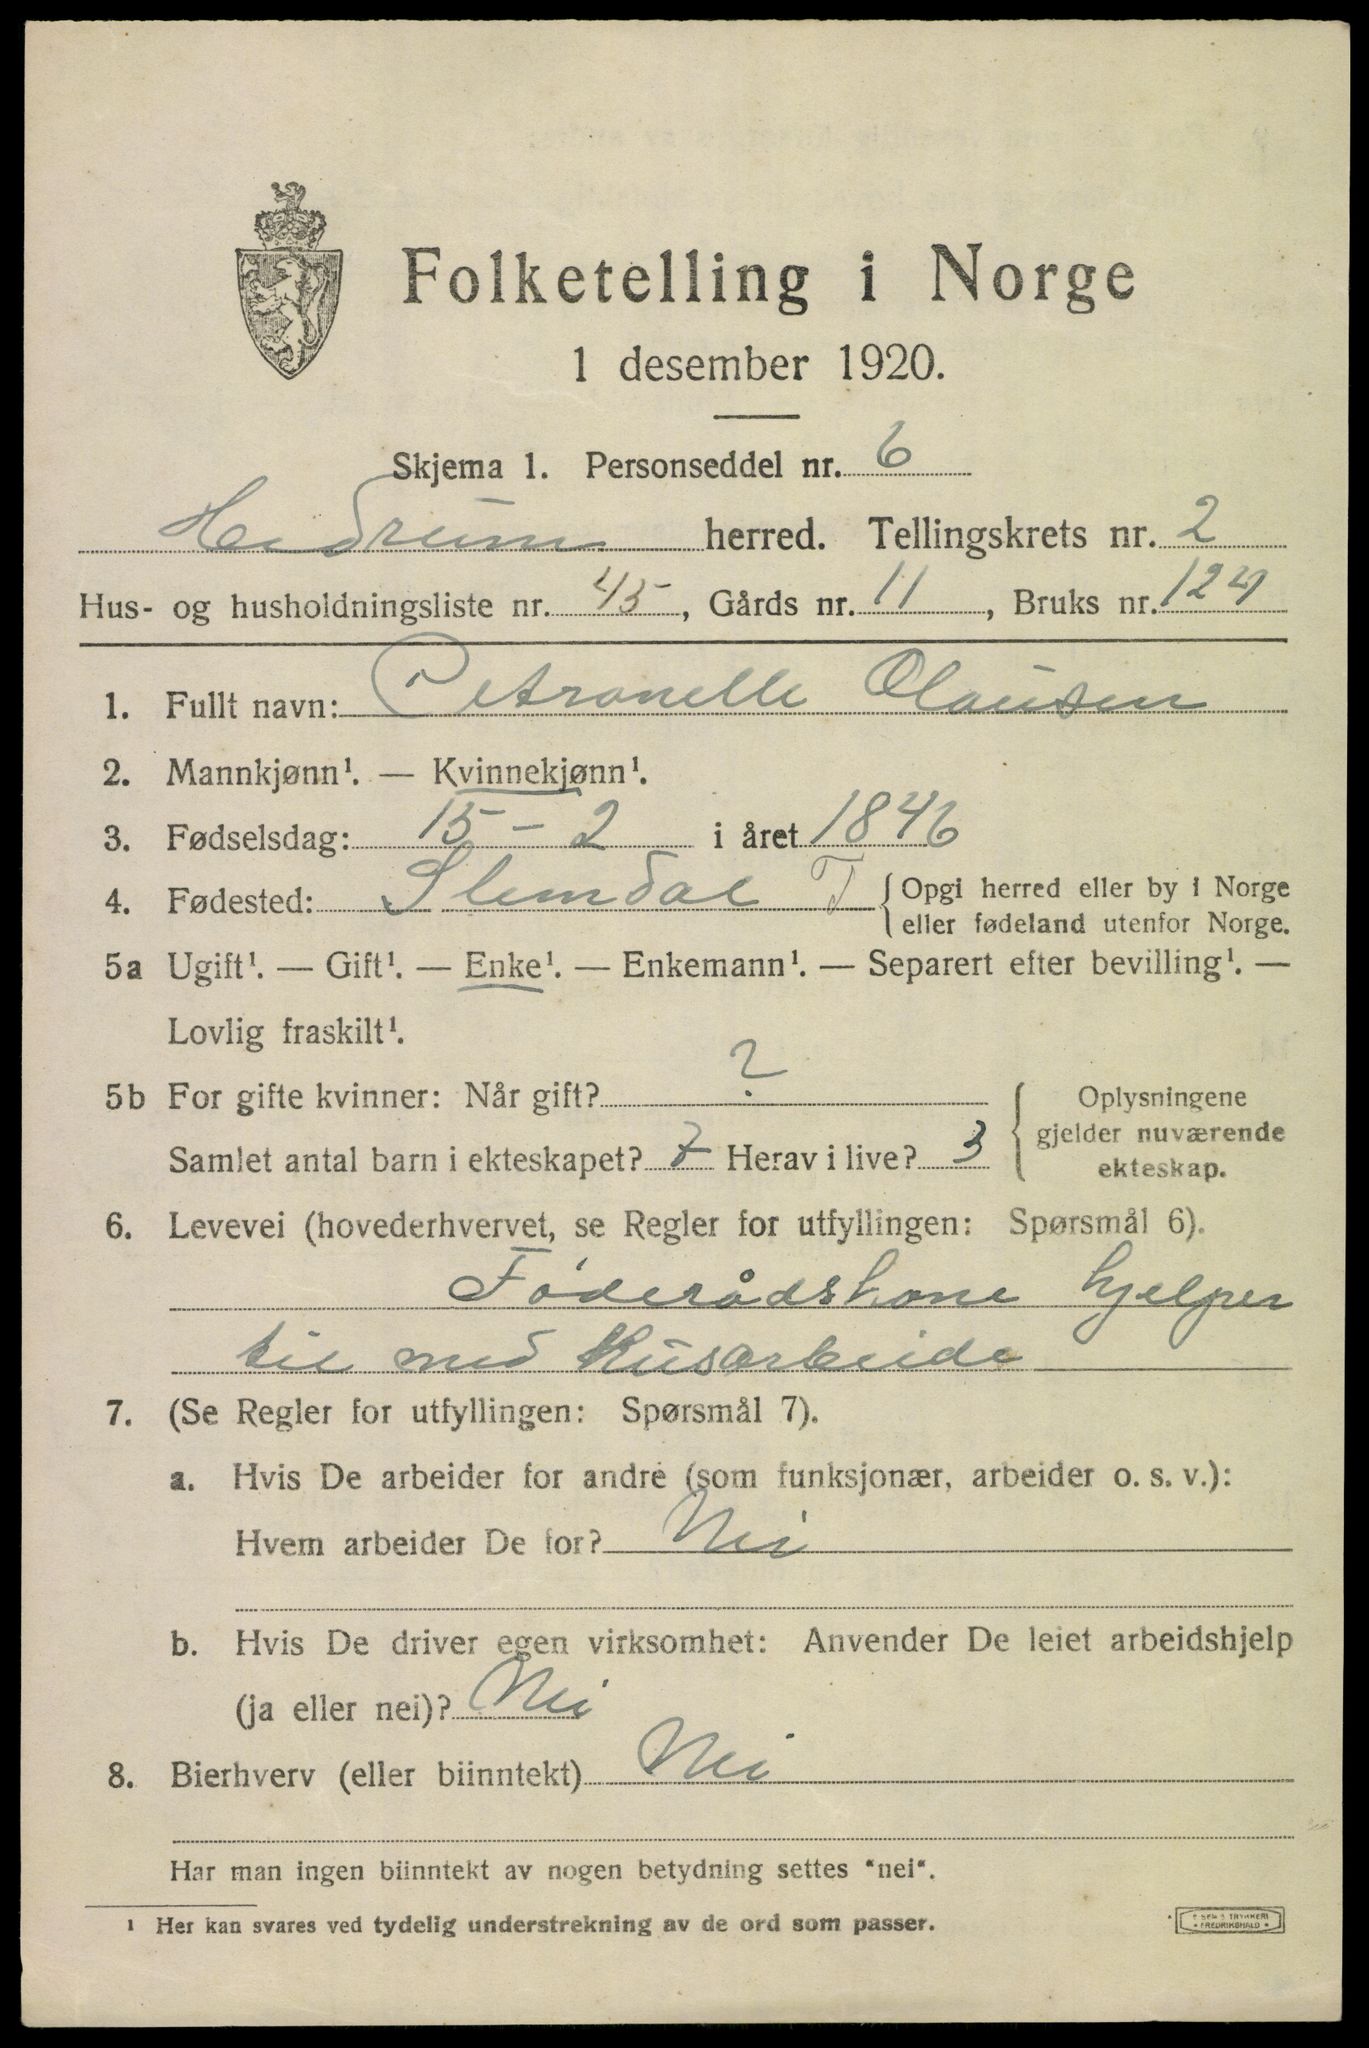 Folketelling i Norge
1 desember 1920.
Skjema 1. Personseddel nr. 6
Hedrum herred. Tellingskrets nr. 2
Hus- og husholdningsliste nr. 45, Gårds nr. 11, Bruks nr. 124
1. Fullt navn: Petronelle Olausen
2. Mannkjønn¹. — Kvinnekjønn¹.
3. Fødselsdag: 15 - 2 i året 1846
4. Fødested: Slemdal T { Opgi herred eller by i Norge
eller fødeland utenfor Norge.
5a Ugift¹. — Gift¹. — Enke¹. — Enkemann¹. — Separert efter bevilling¹. —
Lovlig fraskilt¹.
5b For gifte kvinner: Når gift? ?
Samlet antal barn i ekteskapet? 7 Herav i live? 3
Oplysningene
gjelder nuværende
ekteskap.
6. Levevei (hovederhvervet, se Regler for utfyllingen: Spørsmål 6).
Føderådskone hjelper
til med husarbeide
7. (Se Regler for utfyllingen: Spørsmål 7).
a. Hvis De arbeider for andre (som funksjonær, arbeider o. s. v.):
Hvem arbeider De for? Nei
b. Hvis De driver egen virksomhet: Anvender De leiet arbeidshjelp
(ja eller nei)? Nei
8. Bierhverv (eller biinntekt) Nei
Har man ingen biinntekt av nogen betydning settes "nei".
¹ Her kan svares ved tydelig understrekning av de ord som passer.
TRYKKERI
FREDRIKSHALD